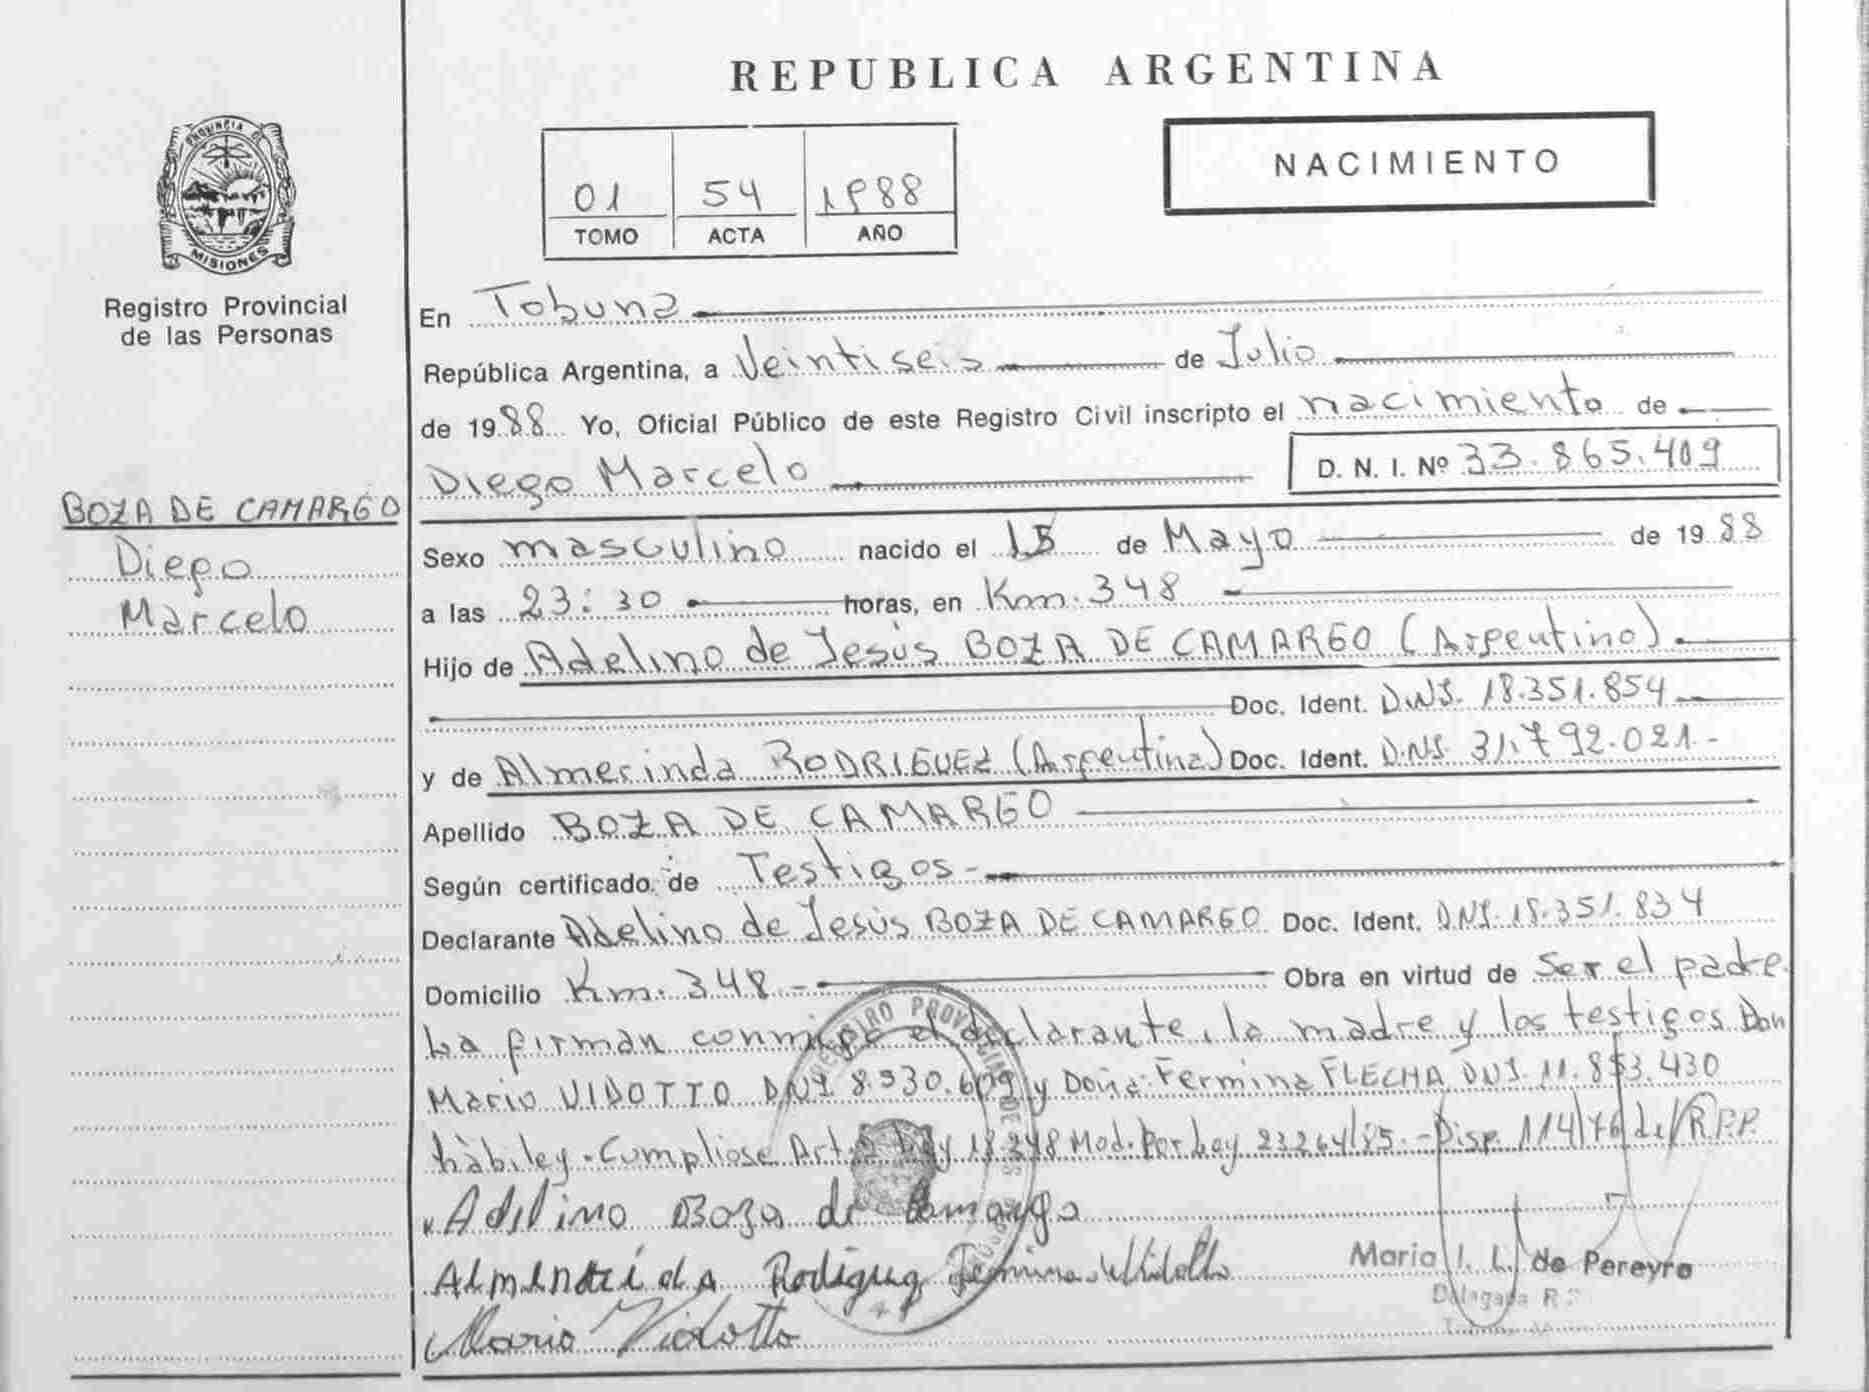 REPUBLICA ARGENTINA
PROVINCIA DE
MISIONES
Registro Provincial
de las Personas
01 54 1988
TOMO ACTA AÑO
NACIMIENTO
En Tobuna
República Argentina, a Veintiseis de Julio
de 1988 Yo, Oficial Público de este Registro Civil inscripto el nacimiento de
Diego Marcelo D. N. I. Nº 33.865.409
BOZA DE CAMARGO
Diego
Marcelo
Sexo masculino nacido el 15 de Mayo de 1988
a las 23:30 horas, en Km. 348
Hijo de Adelino de Jesús BOZA DE CAMARGO (Argentino)
Doc. Ident. D.N.I. 18.351.854
y de Almerinda RODRIGUEZ (Argentina) Doc. Ident. D.N.I. 31.792.021.-
Apellido BOZA DE CAMARGO
Según certificado de Testigos-
Declarante Adelino de Jesús BOZA DE CAMARGO Doc. Ident. DNI. 18.351.834
Domicilio Km. 348.- Obra en virtud de Ser el padre
La firman conmigo el declarante, la madre y los testigos Don
Mario VIDOTTO DNI 8.530.609 y Doña Fermina FLECHA DNI. 11.853.430
hábiles.-Cumpliose Art. Ley 18.248 Mod. Por Ley 23264/85.-Disp. 114/76 del R.P.P.
Adelino Boza de Camargo
Almerida Rodiguez Fermina de Vidotto
Maria I. L. de Pereyra
Delegada R.P.
Mario Vidotto